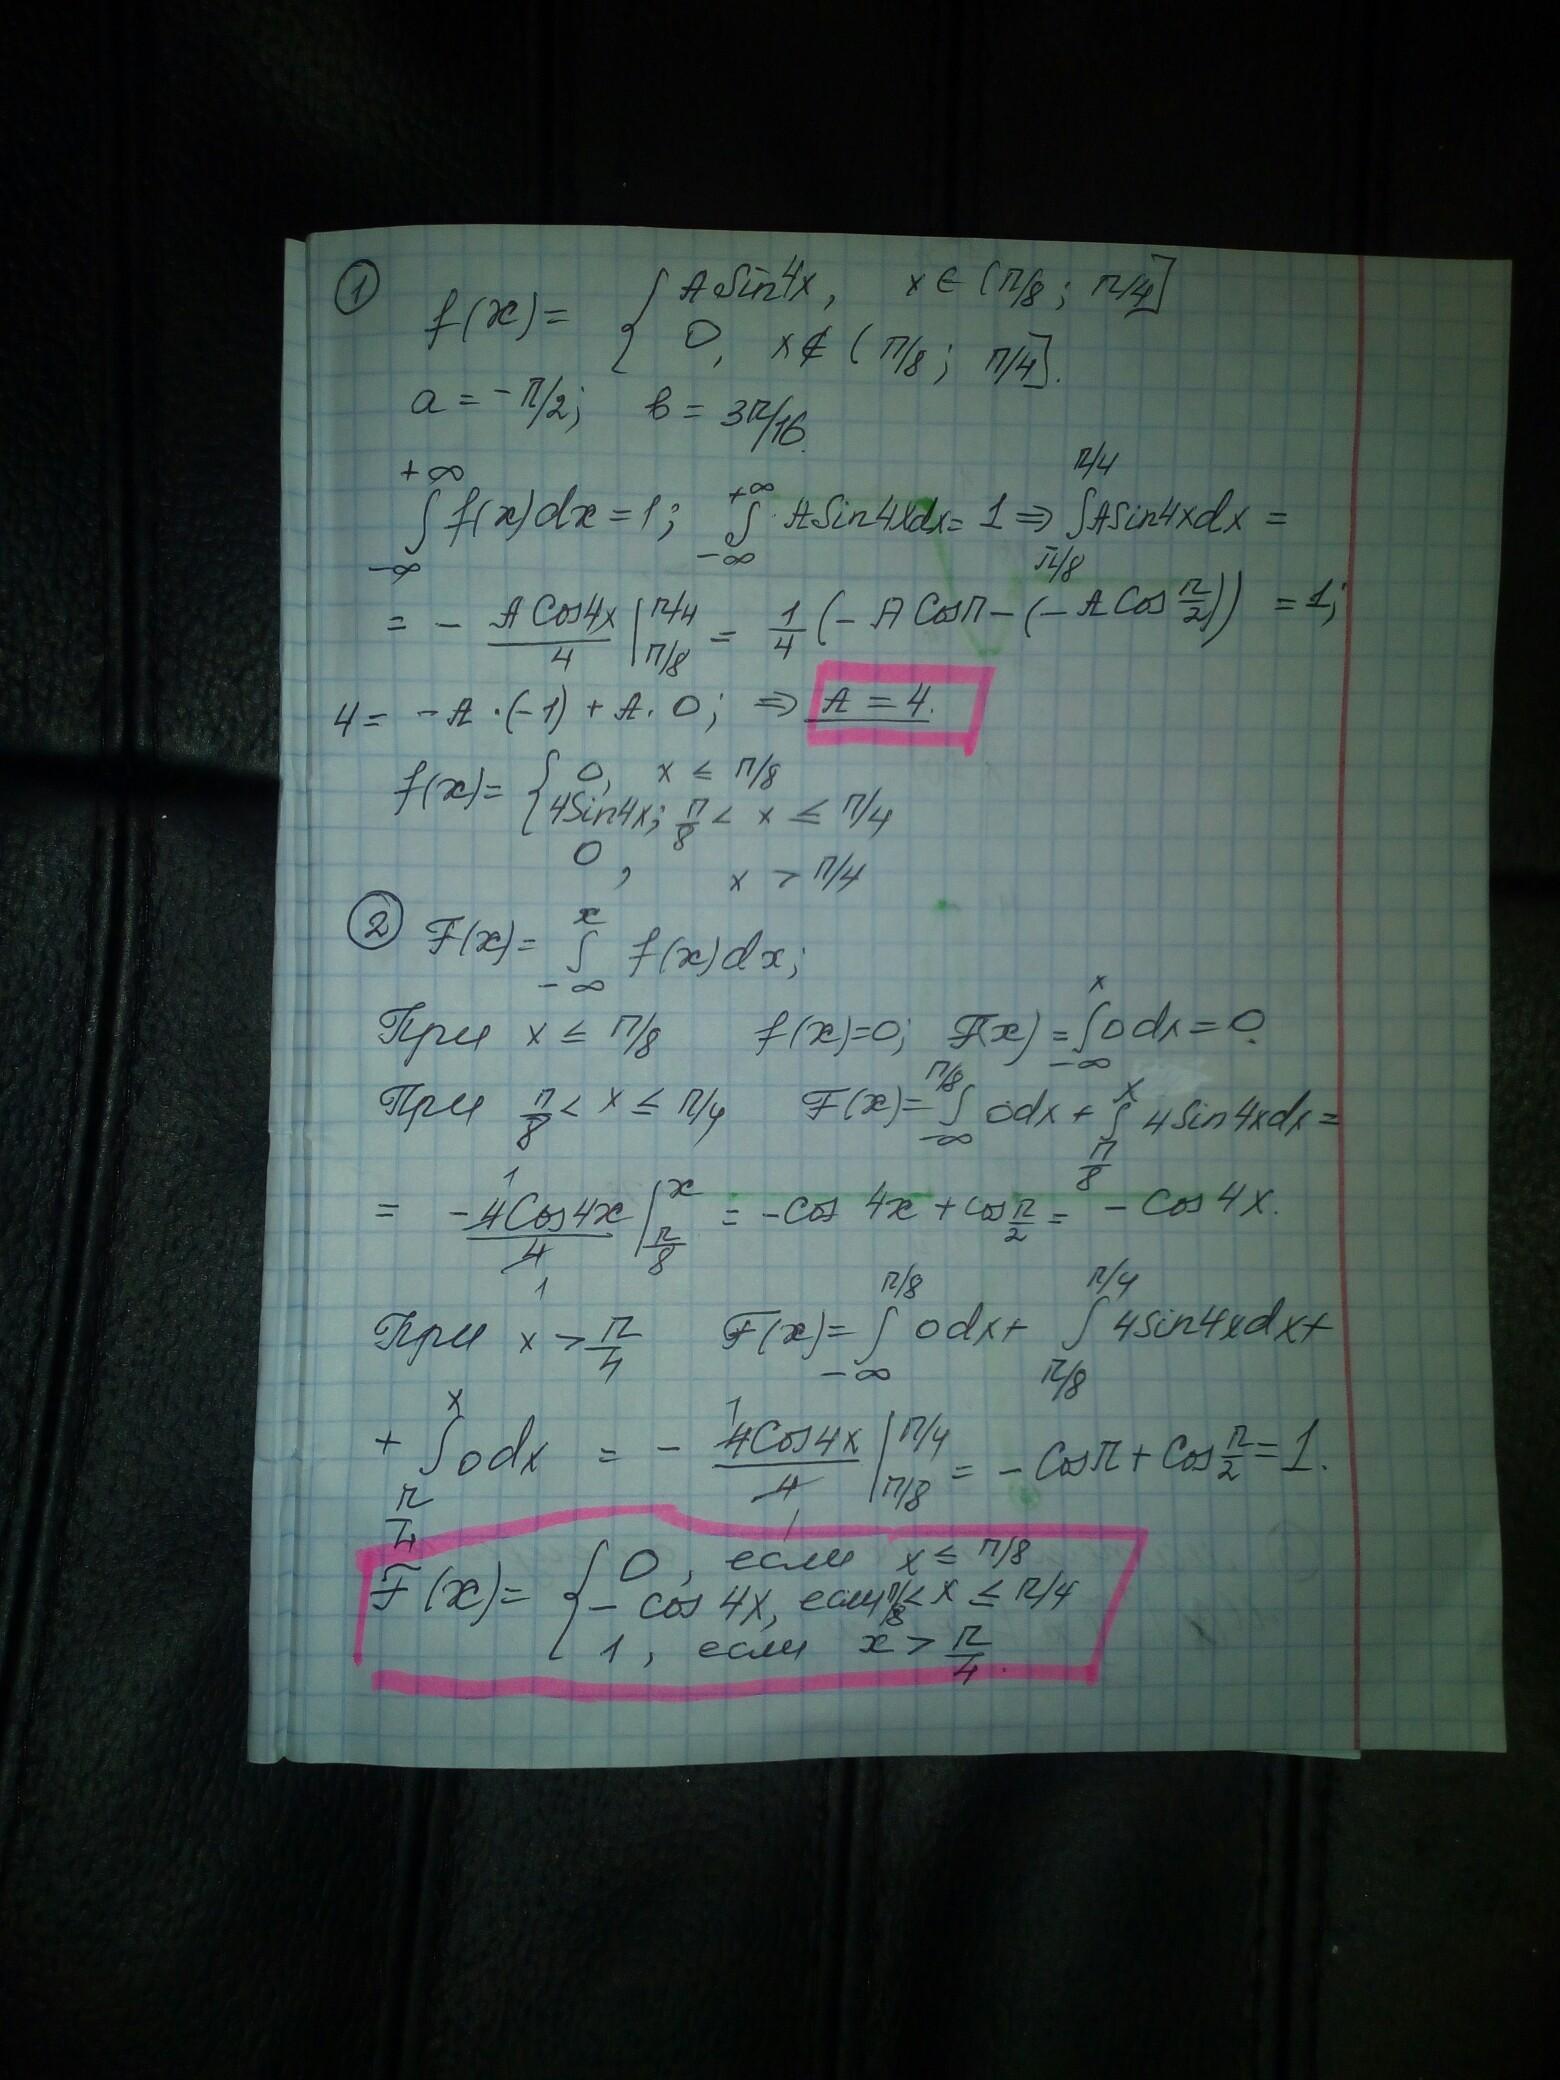 ① f(x) = { A Sin4x, x ∈ (π/8; π/4]
0, x ∉ (π/8; π/4].
a = -π/2; в = 3π/16.
∫_{-∞}^{+∞} f(x)dx = 1; ∫_{-∞}^{+∞} A Sin4xdx = 1 ⇒ ∫_{π/8}^{π/4} A Sin4xdx =
= - A Cos4x/4 |_{π/8}^{π/4} = 1/4 (- A Cosπ - (- A Cos π/2)) = 1;
4 = -A·(-1) + A·0; ⇒ A = 4.
f(x) = { 0, x ≤ π/8
4Sin4x; π/8 < x ≤ π/4
0, x > π/4
② F(x) = ∫_{-∞}^{x} f(x)dx;
При x ≤ π/8 f(x)=0; F(x) = ∫_{-∞}^{x} 0dx = 0.
При π/8 < x ≤ π/4 F(x) = ∫_{-∞}^{π/8} 0dx + ∫_{π/8}^{x} 4Sin4xdx =
= - 4Cos4x/4 |_{π/8}^{x} = -cos 4x + cos π/2 = - Cos 4x.
1
1
При x > π/4 F(x) = ∫_{-∞}^{π/8} 0dx + ∫_{π/8}^{π/4} 4sin4xdx +
+ ∫_{π/4}^{x} 0dx = - 4Cos4x/4 |_{π/8}^{π/4} = - Cosπ + Cos π/2 = 1.
1
1
F(x) = { 0, если x ≤ π/8
- cos 4x, если π/8 < x ≤ π/4
1, если x > π/4.